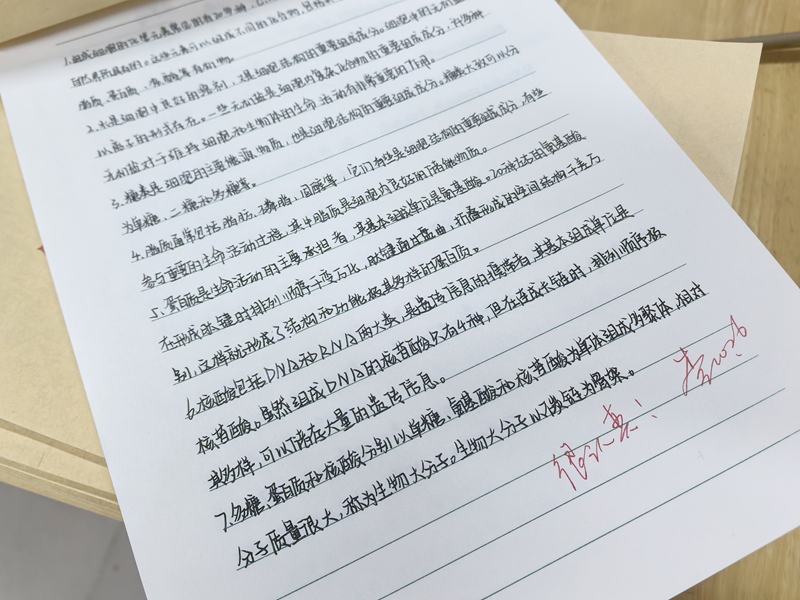 1.组成细胞的化学元素常见的有20多种,
自然界所具有的。这些元素可以组成不同的化合物,包括
脂质、蛋白质、核酸等有机物。
2.水是细胞中良好的溶剂,又是细胞结构的重要组成成分。细胞中的无机盐
以离子的形式存在。一些无机盐是细胞内复杂化合物的重要组成成分,许多种
无机盐对于维持细胞和生物体的生命活动有非常重要的作用。
3.糖类是细胞的主要能源物质,也是细胞结构的重要组成成分。糖类大致可以分
为单糖、二糖和多糖等。
4.脂质通常包括脂肪、磷脂、固醇等,它们有些是细胞结构的重要组成成分,有些
参与重要的生命活动过程。其中脂质是细胞内良好的储能物质。
5.蛋白质是生命活动的主要承担者,其基本组成单位是氨基酸。20多种不同的氨基酸
在形成肽链时排列顺序千变万化,肽链通过盘曲、折叠形成的空间结构千差万
别,这样就形成了结构和功能极其多样的蛋白质。
6.核酸包括DNA和RNA两大类,是遗传信息的携带者,其基本组成单位是
核苷酸。虽然组成DNA的核苷酸只有4种,但在连成长链时,排列顺序极
其多样,可以储存大量的遗传信息。
7.多糖、蛋白质和核酸分别以单糖、氨基酸和核苷酸为单体组成多聚体,相对
分子质量很大,称为生物大分子。生物大分子以碳链为骨架。